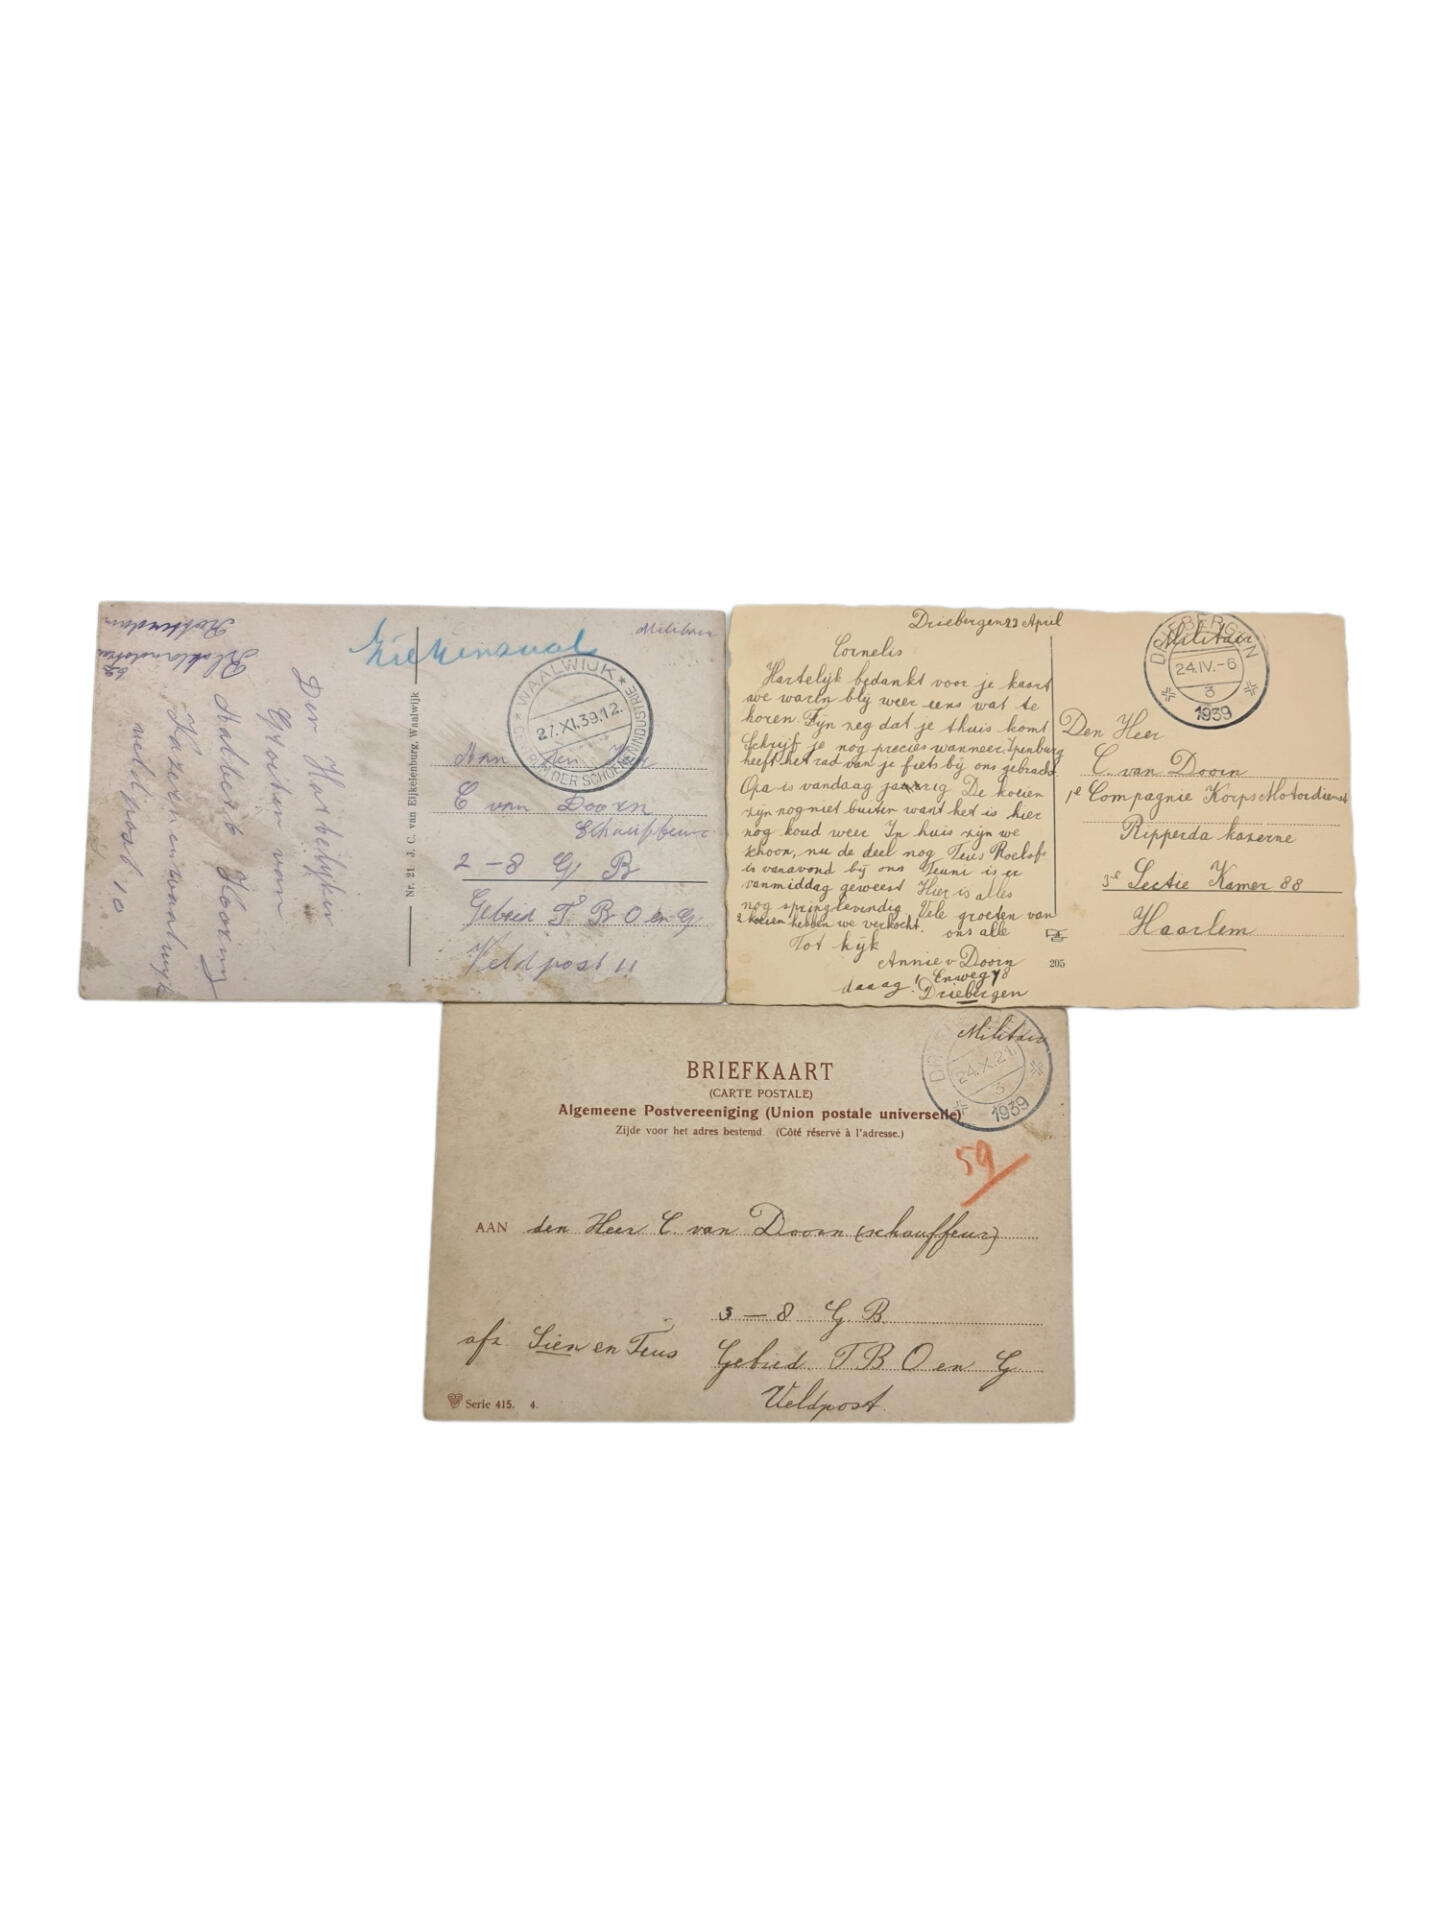 Ziekenzaal
Militair
WAALWIJK
27.XI.39.12.
CENTRUM DER SCHOENENINDUSTRIE
Aan den Heer
C van Doorn
Chauffeur
2 - 8 G B
Gebied T B O en G
Veldpost 11
Nr. 21 J. C. van Eijkelenburg, Waalwijk
Den Hartelijken
Groeten van
Kazerne Waalwijk
veldpost 10
Rotterdam
Driebergen 23 April
Cornelis
Hartelijk bedankt voor je kaart
we waren blij weer eens wat te
horen. Fijn zeg dat je thuis komt
Schrijf je nog precies wanneer, Ipenburg
heeft het rad van je fiets bij ons gebracht
Opa is vandaag jaarig De koeien
zijn nog niet buiten want het is hier
nog koud weer In huis zijn we
schoon, nu de deel nog Teus Roelofs
is vanavond bij ons Teuni is er
vanmiddag geweest Hier is alles
nog springlevendig Vele groeten van
2 koeien hebben we verkocht. ons alle
Tot kijk
Annie v Doorn
daaag! Engweg 78
Driebergen
205
DRIEBERGEN
Militair
24.IV.-6
3
1939
Den Heer
C. van Doorn
1e Compagnie Korps Motordienst
Ripperda kazerne
3e Sectie Kamer 88
Haarlem
BRIEFKAART
(CARTE POSTALE)
Algemeene Postvereeniging (Union postale universelle)
Zijde voor het adres bestemd. (Côté réservé à l'adresse.)
Militair
24.X.21.
3
1939
59
AAN den Heer C. van Doorn (schauffeur)
3 - 8 G B.
afz. Sien en Teus
Gebied T B O en G
Veldpost.
Serie 415. 4.